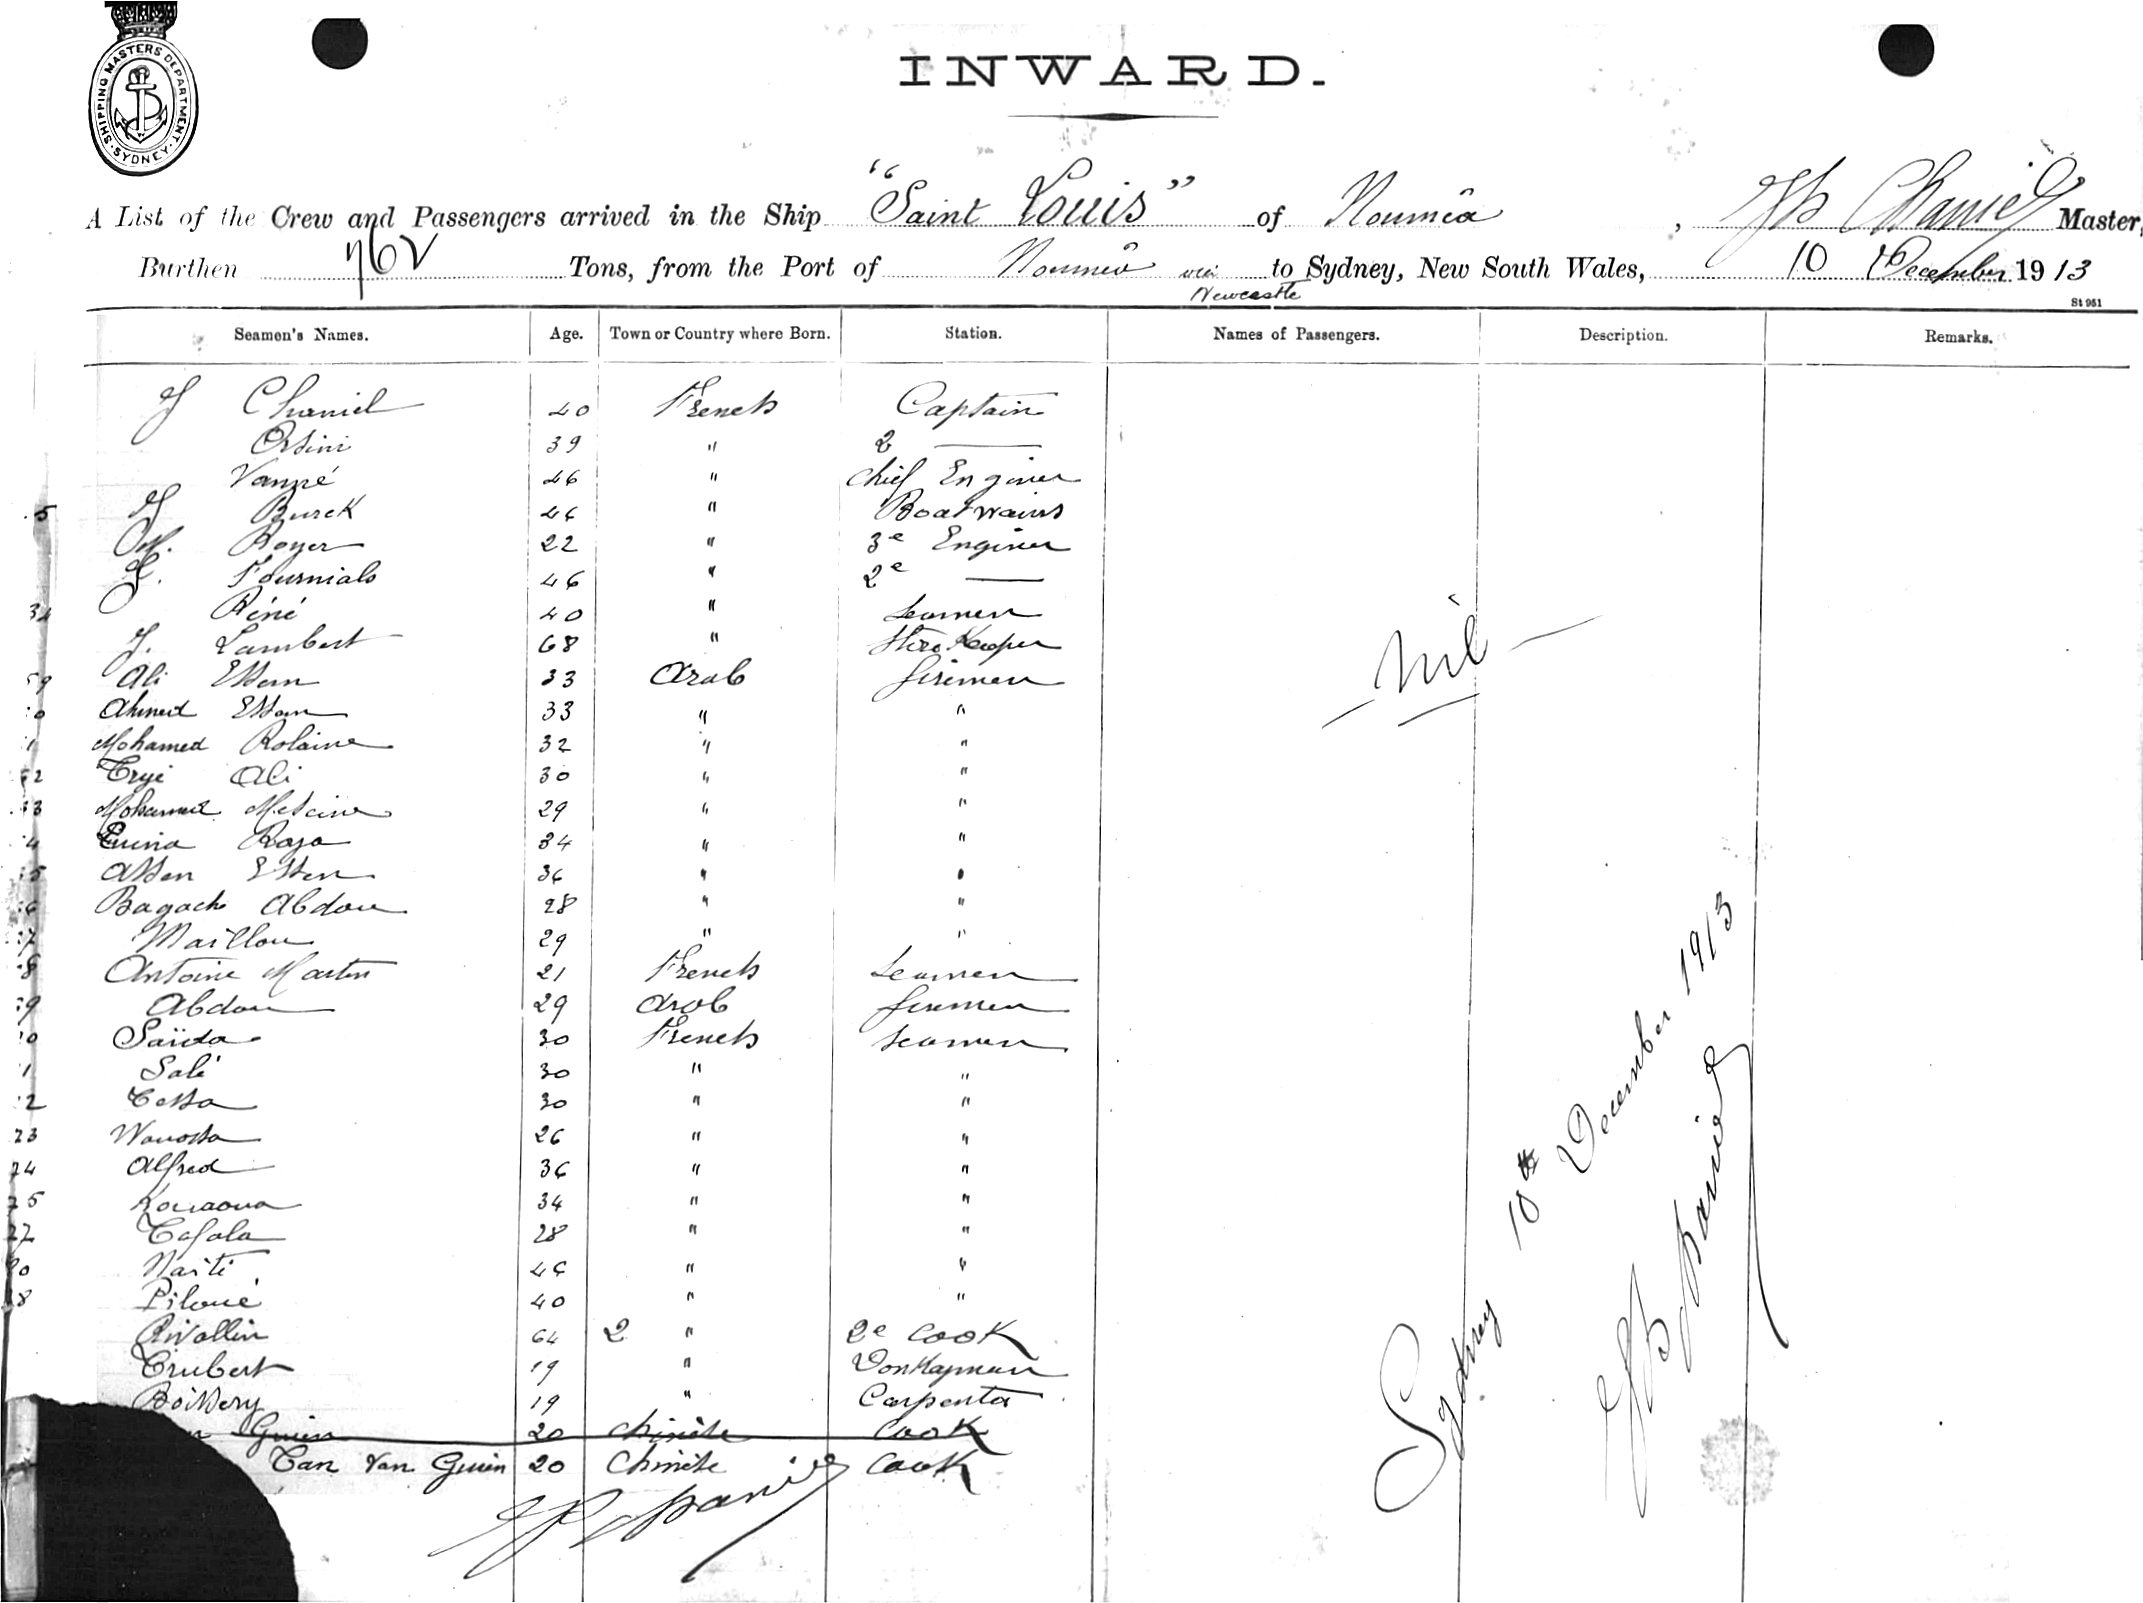 SHIPPING MASTERS DEPARTMENT. SYDNEY
INWARD.
A List of the Crew and Passengers arrived in the Ship "Saint Louis" of Nouméa, Master,
Burthen 762 Tons, from the Port of Nouméa via Newcastle to Sydney, New South Wales, 10 December 1913
St 951
Seamen's Names. Age. Town or Country where Born. Station. Names of Passengers. Description. Remarks.
J Chaniel 40 French Captain
Orsini 39 " 2 ——
Vanné 46 " chief Enginer
5 J Burck 46 " Boatwains
Royer 22 " 3e Enginer
Fournials 46 " 2e ——
Réné 40 " seamen
J. Lambert 68 " Store Keeper
Ali Essen 33 Arab firemen
Ahmed Essen 33 " "
Mohamed Rolaine 32 " "
Ali 30 " "
Mohamed 29 " "
34 " "
Assen Essen 36 " "
Bagach Abdou 28 " "
Maillou 29 " "
Antoine Martin 21 French seamen
Abdou 29 Arab firemen
Saïda 30 French seamen
Salé 30 " "
30 " "
23 26 " "
24 Alfred 36 " "
25 Kouaoua 34 " "
27 Tafala 28 " "
Naiti 46 " "
28 Piloué 40 " "
Rivallin 64 2 " 2e cook
Trubert 19 " Donkayman
Boissery 19 " Carpenter
Guien 20 chinese cook
Tan Van Guien 20 chinese cook
— Nil —
Sydney 10th December 1913